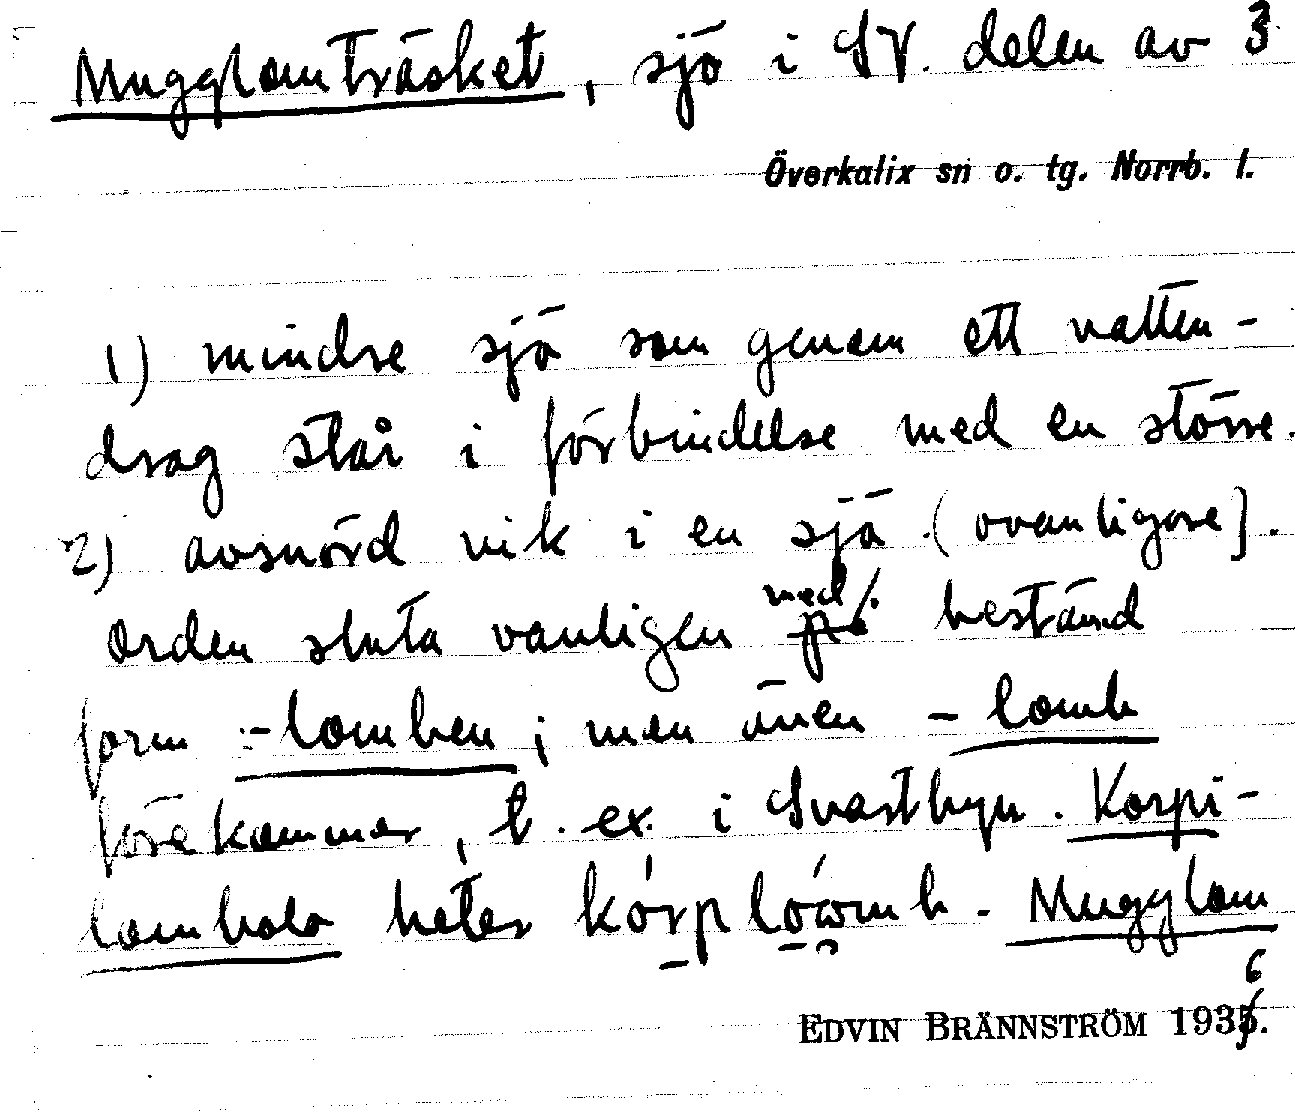 Mugglomträsket, sjö i SV. delen av 3
Överkalix sn o. tg. Norrb. l.
1) mindre sjö som genom ett vatten-
drag står i förbindelse med en större.
2) avsnörd vik i en sjö (ovanligare).
Orden sluta vanligen med bestämd
form -lomben; men även -lomb
förekommer, t. ex. i Svartbyn. Korpi-
lombolo heter
Mugglom
6
EDVIN BRÄNNSTRÖM 1935.